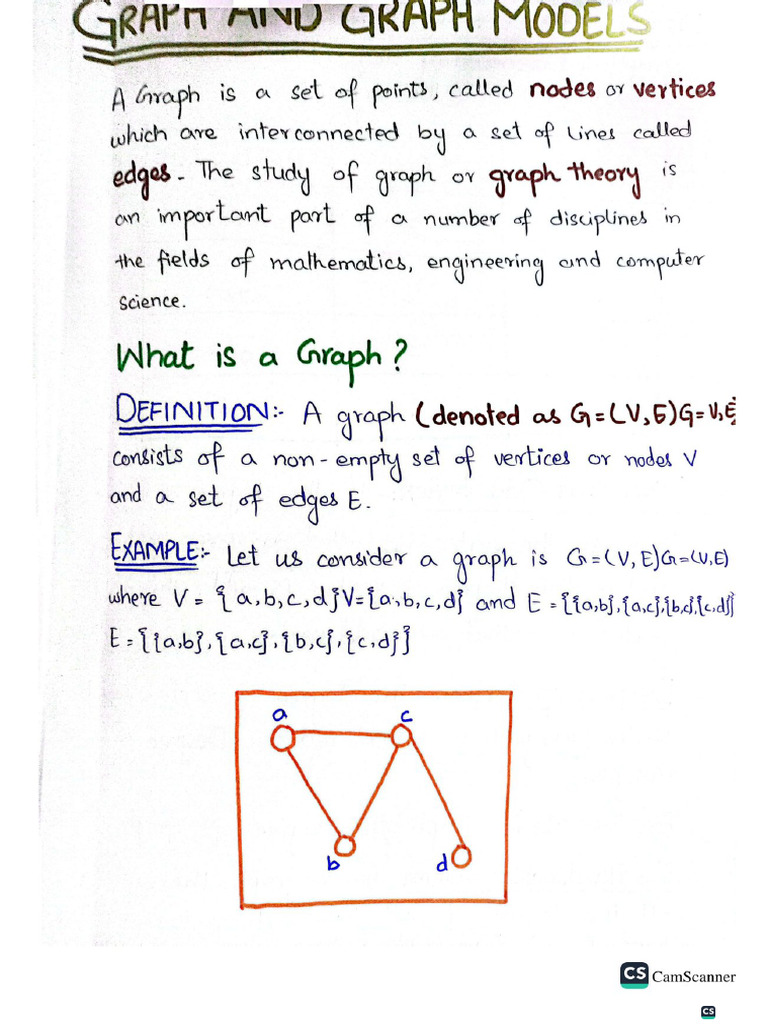 GRAPH AND GRAPH MODELS
A Graph is a set of points, called nodes or vertices
which are interconnected by a set of lines called
edges. The study of graph or graph theory is
an important part of a number of disciplines in
the fields of mathematics, engineering and computer
science.
What is a Graph?
DEFINITION:- A graph (denoted as G=(V,E)G=V,E)
consists of a non-empty set of vertices or nodes V
and a set of edges E.
EXAMPLE:- Let us consider a graph is G=(V,E)G=(V,E)
where V = {a,b,c,d}V={a,b,c,d} and E ={{a,b},{a,c},{b,c},{c,d}}
E={{a,b},{a,c},{b,c},{c,d}}
a c
b d
CS CamScanner
CS